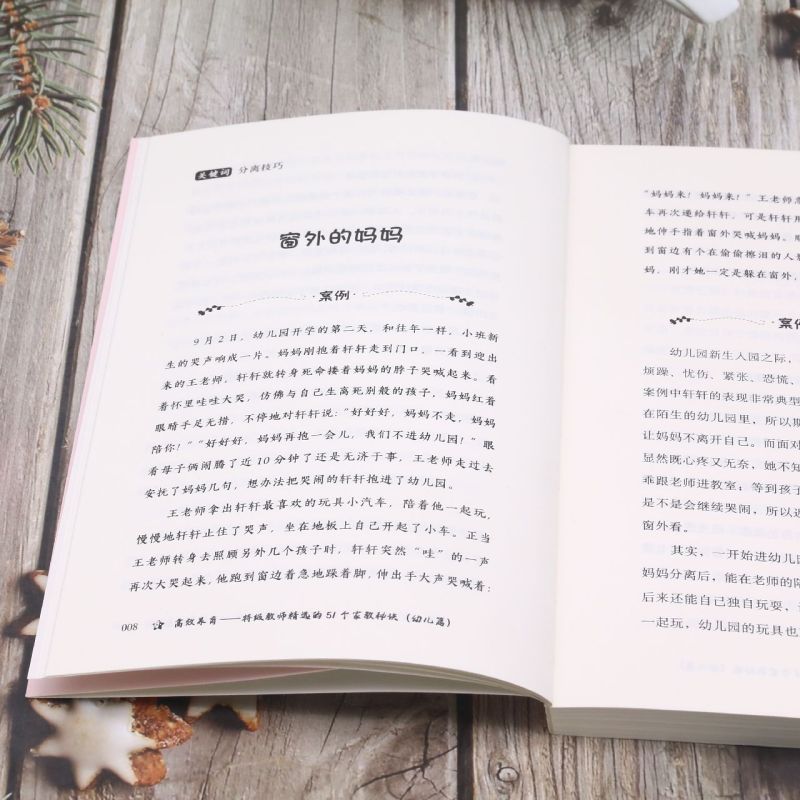 关键词 分离技巧
窗外的妈妈
案例
9月2日，幼儿园开学的第二天，和往年一样，小班新
生的哭声响成一片。妈妈刚抱着轩轩走到门口，一看到迎出
来的王老师，轩轩就转身死命搂着妈妈的脖子哭喊起来。看
着怀里哇哇大哭，仿佛与自己生离死别般的孩子，妈妈红着
眼睛手足无措，不停地对轩轩说：“好好好，妈妈不走，妈妈
陪你！”“好好好，妈妈再抱一会儿，我们不进幼儿园！”眼
看母子俩闹腾了近10分钟了还是无济于事，王老师走过去
安抚了妈妈几句，想办法把哭闹的轩轩抱进了幼儿园。
王老师拿出轩轩最喜欢的玩具小汽车，陪着他一起玩，
慢慢地轩轩止住了哭声，坐在地板上自己开起了小车。正当
王老师转身去照顾另外几个孩子时，轩轩突然“哇”的一声
再次大哭起来，他跑到窗边着急地跺着脚，伸出手大声哭喊着：
008 高效养育——特级教师精选的51个家教秘诀（幼儿篇）
“妈妈来！妈妈来！”王老师
车再次递给轩轩，可是轩轩
地伸手指着窗外哭喊妈妈。
到窗边有个在偷偷擦泪的人
妈，刚才她一定是躲在窗外，
案例
幼儿园新生入园之际，
烦躁、忧伤、紧张、恐慌、
案例中轩轩的表现非常典型
在陌生的幼儿园里，所以
让妈妈不离开自己。而面对
显然既心疼又无奈，她不知
乖跟老师进教室；等到孩子
是不是会继续哭闹，所以
窗外看。
其实，一开始进幼儿园
妈妈分离后，能在老师的
后来还能自己独自玩耍，
一起玩，幼儿园的玩具也